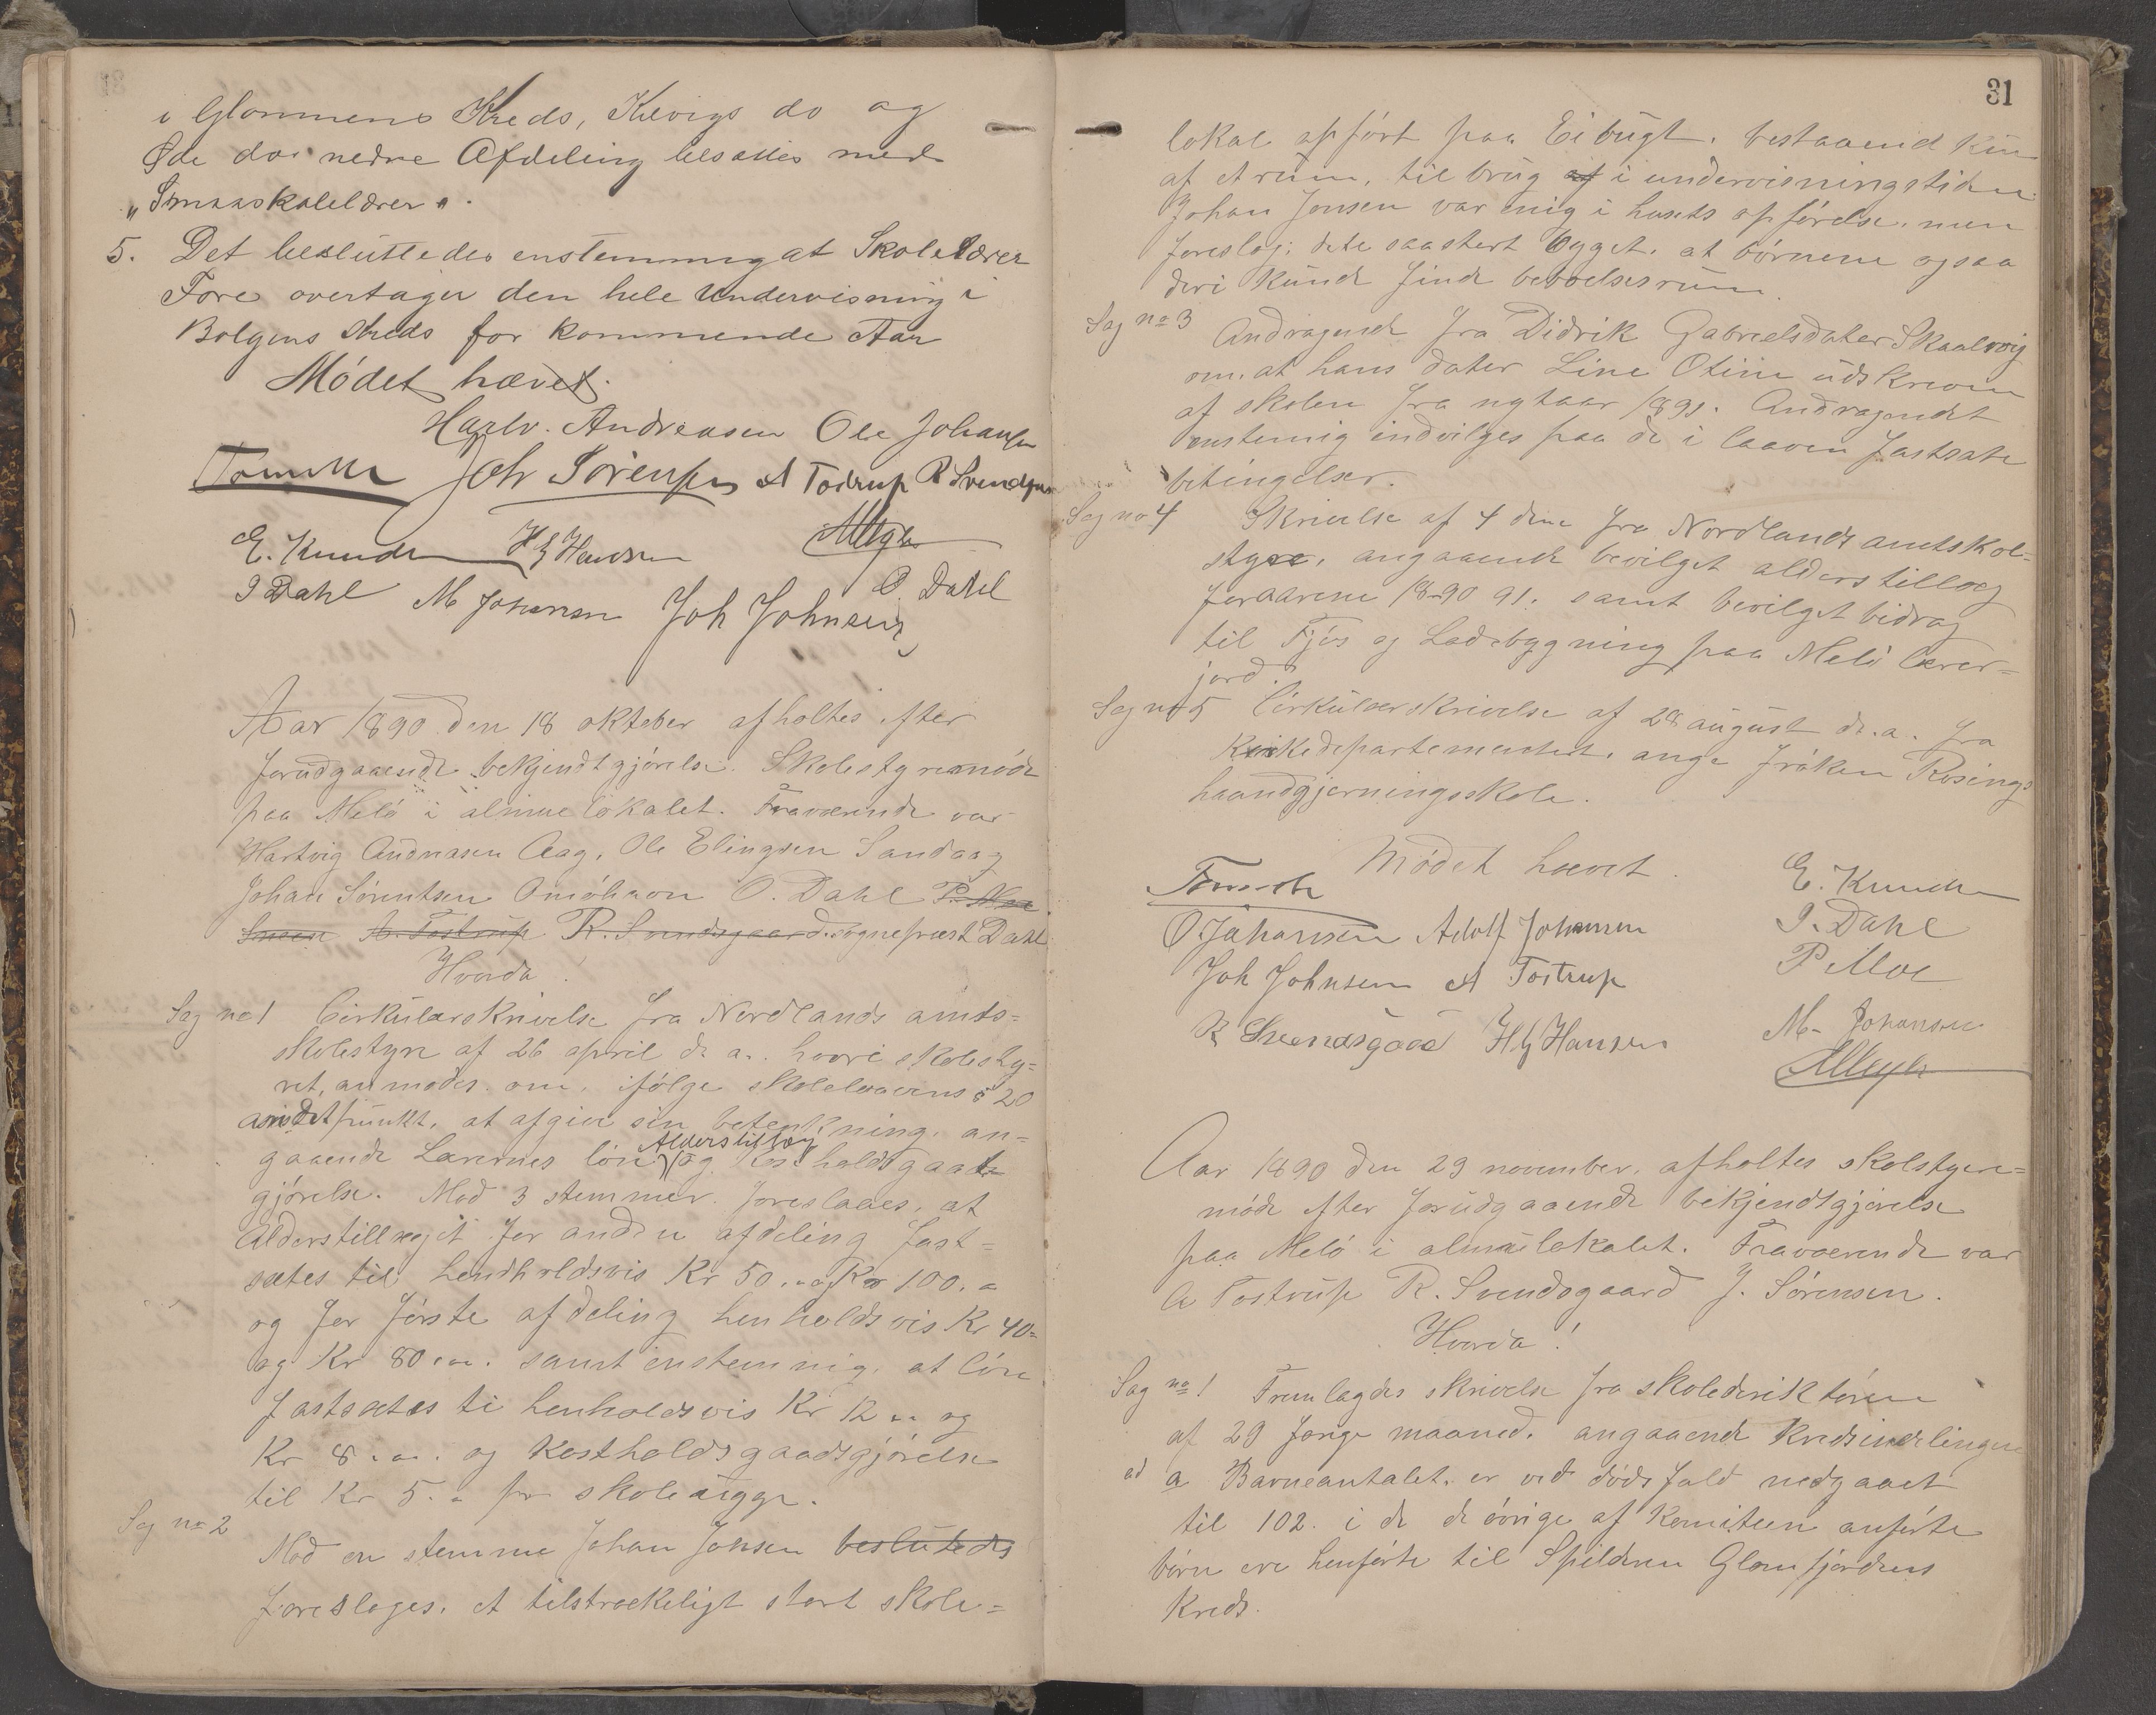 i Glommens Kreds, Kilvigs do og
Øde dos nedre Afdeling besættes med
"Smaaskolelærer".
5. Det besluttedes enstemmig at Skolelærer
Fore overtager den hele Undervisning i
Bolgens Kreds for kommende Aar
Mødet hævet.
Hartv. Andreasen Ole Johansen
Joh Sørensen A Tostrup R Svendsgaard
E. Knudsen H G Hansen AMeyer
J Dahl M Johansen Joh Johnsen O. Dahl
Aar 1890 den 18 oktober afholtes efter
forudgaaende bekjendtgjørelse Skolestyremøde
paa Melø i almuelokalet. Fraværende var
Hartvig Andreasen Aag, Ole Elingsen Sandaag
Johan Sørentsen O. Dahl P. Moe
A. Tostrup R. Svendsgaard. sognepræst Dahl
Hvorda!
Sag no 1 Cirkulærskrivelse fra Nordlands amts=
skolestyre af 26 april d. a. hvori skolesty=
ret, anmodes om, ifølge skolelovens § 20
andet punkt, at afgive sin betenkning, an=
gaaende Lærernes løn Alderstillæg og Kostholdsgodt
gjørelse. Mod 3 stemmer foreslaaes, at
Alderstillæget for anden afdeling fast=
sættes til henholdsvis Kr 50.„ og Kr 100.„
og for første afdeling henholdsvis Kr 40„
og Kr 80.„. samt enstemmig, at løn
fastsættes til henholdsvis Kr 12 „ og
Kr 8.„. og Kostholdsgaadtgjørelse
til Kr 5.„ pr skoleugge.
Sag no 2
Mod en stemme Johan Jonsen besluttedes
foreslages, et tilstrækeligt stort skole=
31
lokal opført paa Eibugt, bestaaend kun
af et rum, til brug af i undervisningstiden
Johan Jonsen var enig i husets opførelse, men
foreslog; dete saa stort bygget, at børnene ogsaa
deri kunde finde beboelsesrum.
Sag no 3 Andragende fra Didrik Gabrielsdater Skaalsvig
om, at hans dater Line Otine udskreven
af skolen fra nytaar 1891. Andragendet
enstemig indvilges paa de i laaven fastsate
betingelser.
Sag no 4 Skrivelse af 4 dene fra Nordlands amtskol=
styre, angaaende bevilget alderstillæg
for aarene 18-90 91, samt bevilget bidrag
til Fjøs og Ladebygning paa Melø lærer=
jord.
Sag no 5 Cirkulærskrivelse af 28 august d. a. fra
Kirkedepartementet, ang. frøken Rosings
haandgjerningsskole.
Mødet hævet
O. Johansen Adolf Johansen
Joh Johnsen A Tostrup
R Svendsgaard H G Hansen
E. Knudsen
J. Dahl
P Moe
M. Johansen
AMeyer
Aar 1890 den 29 november, afholtes skolstyre=
møde efter forudgaaende bekjendtgjørelse
paa Melø i almuelokalet. Fraværende var
A Tostrup R. Svendsgaard J. Sørensen.
Hvorda!
Sag no 1 Fremlagdes skrivelse fra skoledirektøren
af 29 forige maaned, angaaende Kredsindelingen
ad a Barneantalet, er ved dødsfald nedgaaet
til 102. i de de øvrige af Komiteen anførte
børn ere henførte til Spildren Glomfjordens
Kreds.